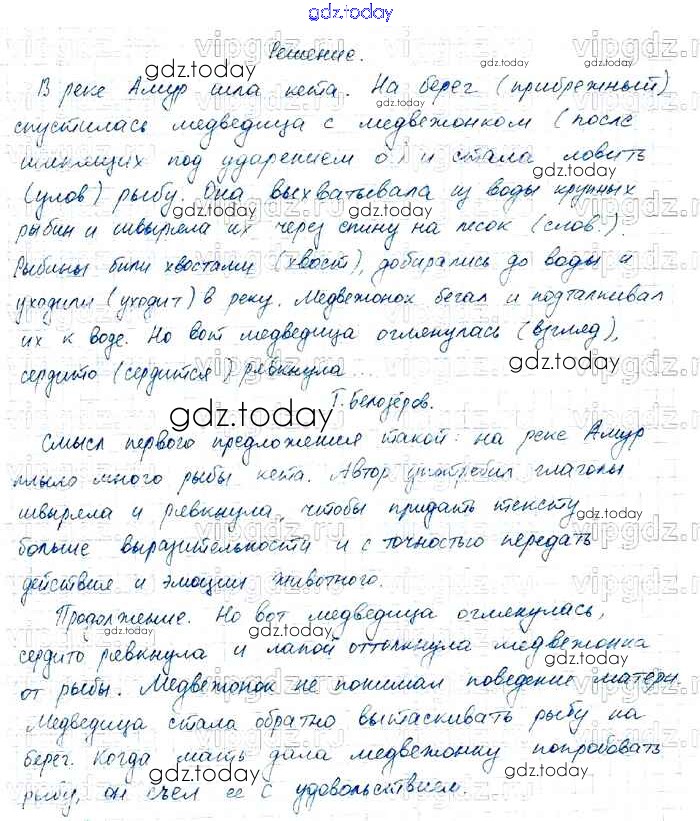 gdz.today
Решение.
В реке Амур шла кета. На берег (прибрежный)
спустилась медведица с медвежонком (после
шипящих под ударением о) и стала ловить
(улов) рыбу. Она выхватывала из воды крупных
рыбин и швыряла их через спину на песок (слов.).
Рыбины били хвостами (хвост), добирались до воды и
уходили (уходит) в реку. Медвежонок бегал и подталкивал
их к воде. Но вот медведица оглянулась (взгляд),
сердито (сердится) рявкнула...
Т. Белозёров.
Смысл первого предложения такой: на реке Амур
плыло много рыбы кета. Автор употребил глаголы
швыряла и рявкнула, чтобы придать тексту
больше выразительности и с точностью передать
действия и эмоции животного.
Продолжение. Но вот медведица оглянулась,
сердито рявкнула и лапой оттолкнула медвежонка
от рыбы. Медвежонок не понимал поведение матери.
Медведица стала обратно вытаскивать рыбу на
берег. Когда мать дала медвежонку попробовать
рыбу, он съел её с удовольствием.